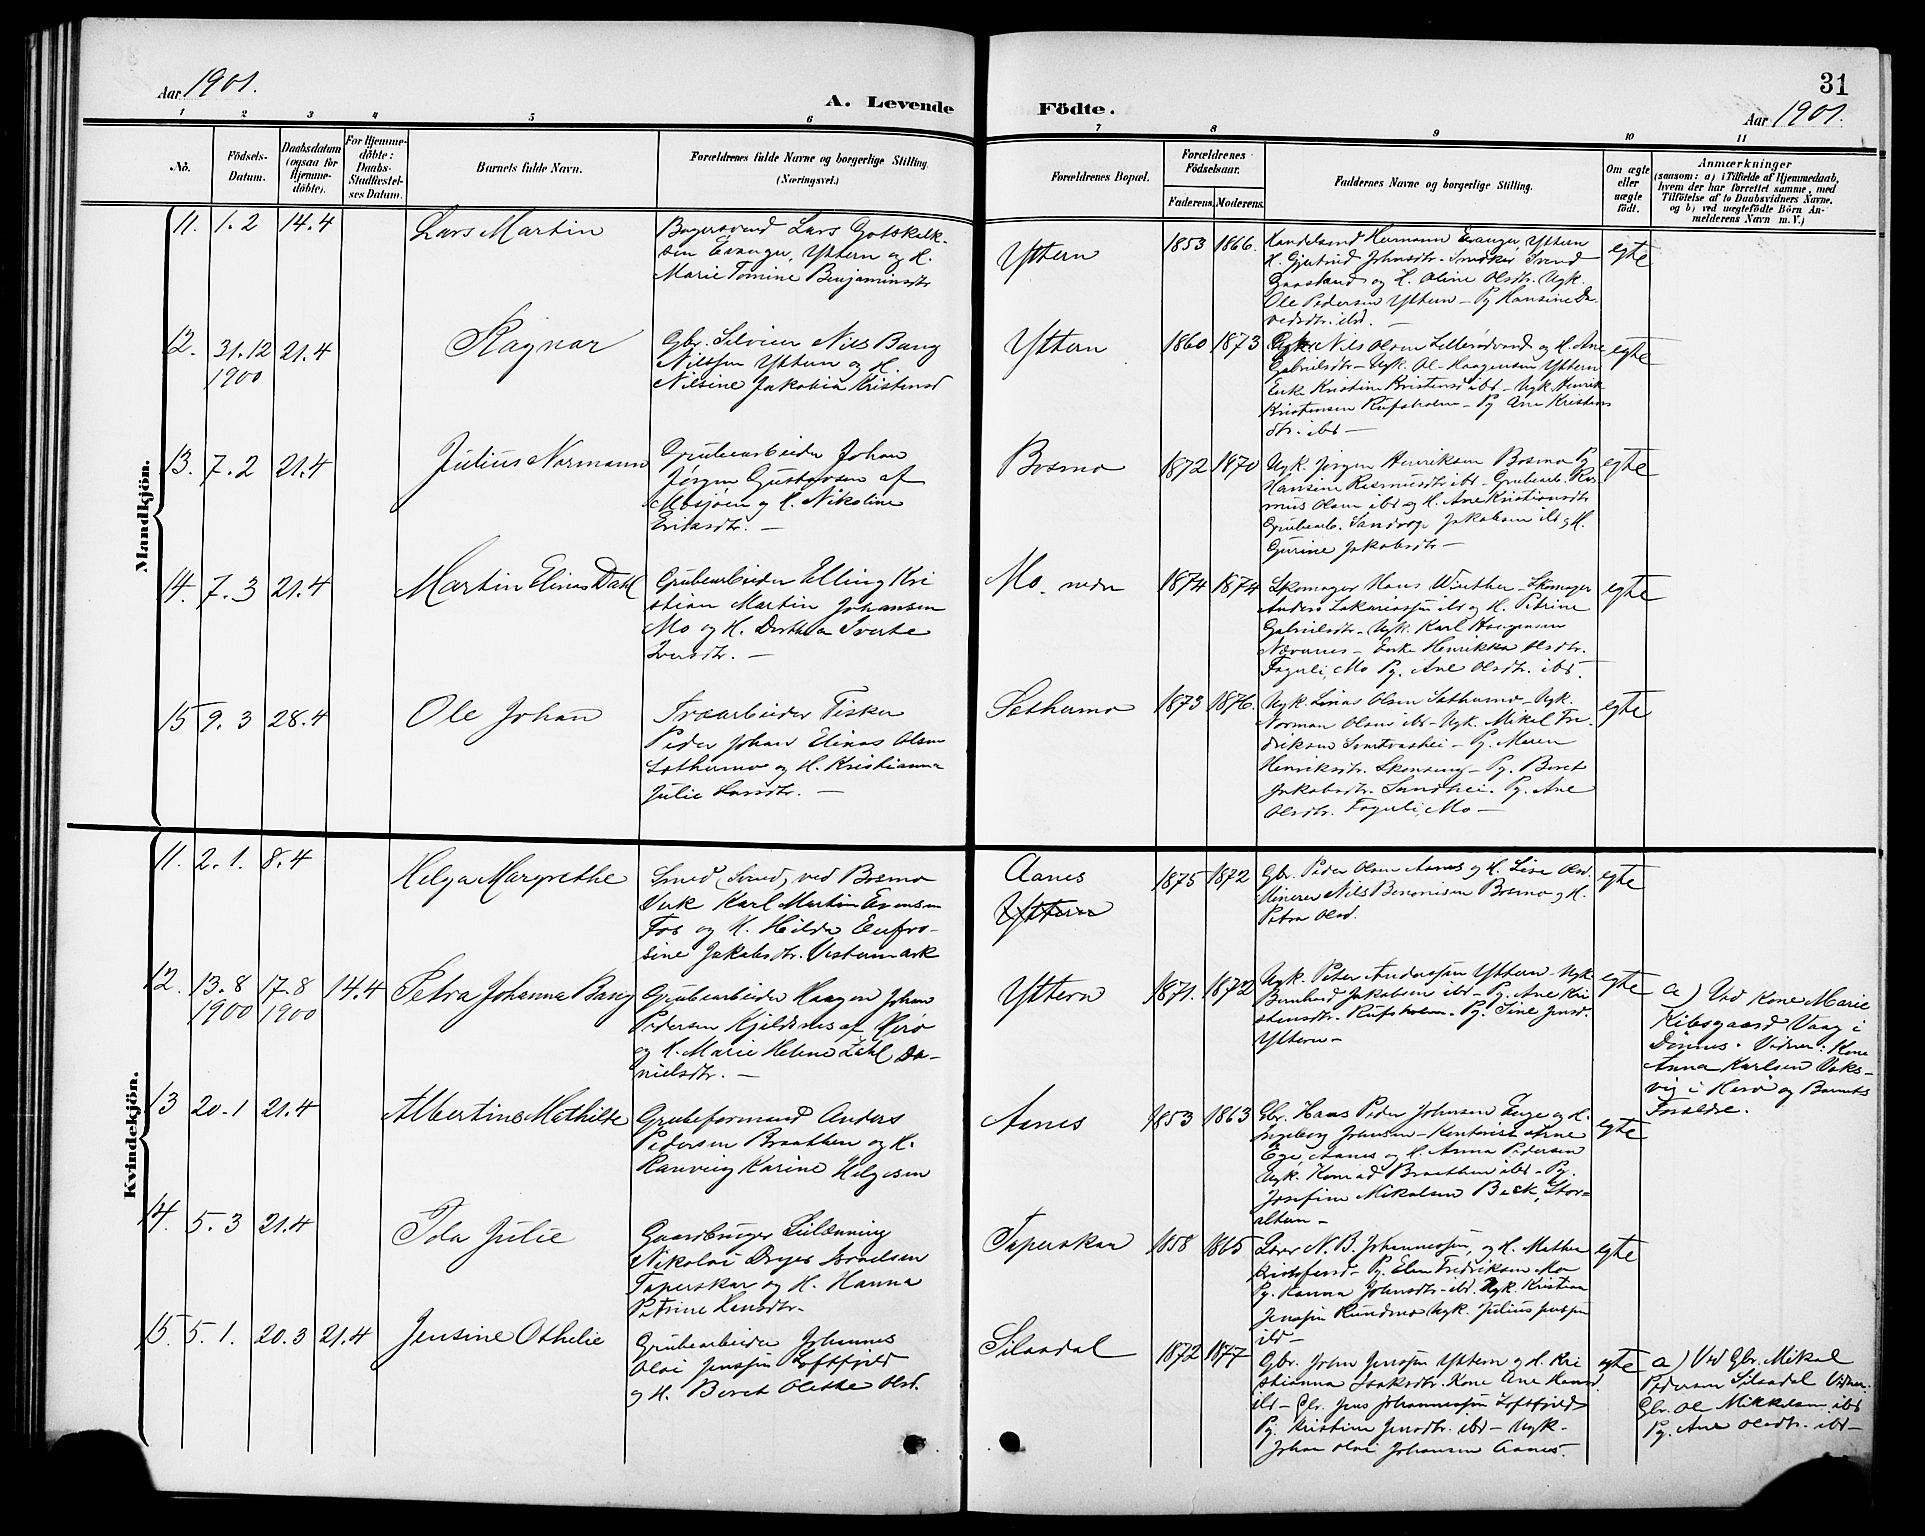 31
Aar 1901.
A. Levende
Födte.
Aar 1901.
1 2 3 4 5 6 7 8 9 10 11
No.
Födsels-
Datum.
Daabsdatum
(ogsaa for
Hjemme-
döbte).
For Hjemme-
döbte:
Daabs-
Stadfæstel-
ses Datum.
Barnets fulde Navn.
Forældrenes fulde Navne og borgerlige Stilling.
(Næringsvei.)
Forældrenes Bopæl.
Forældrenes
Födselsaar.
Faderens. Moderens.
Faddernes Navne og borgerlige Stilling.
Om ægte
eller
uægte
født.
Anmærkninger
(saasom: a) i Tilfælde af Hjemmedaab,
hvem der har forrettet samme, med
Tilföielse af to Daabsvidners Navne,
og b) ved uægtefödte Börn An-
melderens Navn m. V.)
Mandkjön.
11. 1.2 14.4
Lars Martin
Lars Gotskalk-
sen Evanger, Yttern og H.
Marie Tomine Benjaminsdtr
Yttern
1853 1866.
Handelsmd Hermann Evanger, Yttern
H. Gjertrud Johnsdtr. Svend
og H. Oline Olsdtr. Ugk.
Ole Pedersen Yttern – Pg Hansine Da-
vidsdtr. ibd. –
egte
12. 31.12 21.4
1900
Ragnar
Gbr. Nils Bang
Nilssen Yttern og H.
Nilsine Jakobia Kristensd
Yttern
1860 1873
Nils Olsen og H. Ane
Gabrielsdtr – Ugk. Ol. Haagensen Yttern
Enke Kristine Kristensd ibd – Ugk. Henrik
Kristensen Rufsholm – Pg Ane Kristens
dtr. ibd –
egte
13. 7.2 21.4
Julius Normann
Grubearbeider Johan
Jørgen Gustavsen af
Mosjøen og H. Nikoline
Eriksdtr. –
Bosmo
1872 1870
Ugk. Jørgen Henriksen Bosmo Pg
Hansine Rasmusdtr ibd – Grubearb. Ras
mus Olsen ibd og H. Ane Kristiansdtr
Grubearb. Jakobsen ibd og H.
Gurine Jakobsdtr –
egte
14. 7.3 21.4
Martin Elias Dahl
Grubearbeider Elling Kri
stian Martin Johansen
Mo og H. Dorthea
Iversdtr. –
Mo. nedre
1874 1874
Skomager Hans Winther – Skomager
Anders Zakariassen ibd og H. Petrine
Gabrielsdtr – Ugk. Karl Haagensen
Nævernes – Enke Henrikka Olsdtr.
Fagerli, Mo Pg. Ane Olsdtr. ibd.
egte
15 9.3 28.4
Ole Johan
Træarbeider Fisker
Peder Johan Elias Olsen
Sethermo og H. Kristianna
Julie Larsdtr. –
Sethermo
1873 1876.
Ugk. Linas Olsen Sethermo – Ugk.
Norman Olsen ibd – Ugk. Mikal Fre-
driksen Svartvashei – Pg. Maren
Henriksdtr. Skonseng – Pg. Beret
Jakobsdtr. Sandhei. Pg. Ane
Olsdtr. Fagerli, Mo –
egte
Kvindekjön.
11. 2.1. 8.4
Helga Margrethe
Smed (Svend) ved Bosmo
Værk Karl Martin Evensen
Fos og H. Hilda Eufro-
sine Jakobsdtr. Vestermark
Aanes
Yttern
1875 1872
Gbr. Peder Olsen Aanes og H. Lise Olsd.
Minerer Nils Benonisen Bosmo og H.
Petra Olsd.
egte
12. 13.8 17.8 14.4
1900 1900
Petra Johanna Bang
Grubearbeider Haagen Johan
Pedersen Kjeldsnes af Herö
og H. Marie Helene Zahl Da-
nielsdtr. –
Yttern
1871. 1872
Ugk. Peter Anderssen Yttern – Ugk
Bernhard Jakobsen ibd – Pg. Ane Kri
stensdtr. Rufsholm. Pg. Sine Jensd.
Yttern –
egte
a) Ved Kone Marie
Kibsgaard Vaag i
Dønnes. Vidner: Kone
Anna Karlsen Vaks-
vig i Herö og Barnets
Forældre.
13 20.1 21.4
Albertine Mathilde
Grubeformand Anders
Pedersen Braathen og H.
Ranveig Karine Helgesen
Aanes
1853 1863
Gbr. Hans Peder Johnsen Enge og H.
Ingeborg Johnsen – Kontorist Arne
Ege, Aanes og H. Anna Pedersen
Ugk. Konrad Braathen ibd – Pg.
Josefine Nikolsen Beck, Stor-
alteren –
egte
14. 5.3 21.4
Ida Julie
Gaardbruger Leilænding
Nikolai Dreyer Israelsen
Taperskar og H. Hanna
Petrine Hansdtr.
Taperskar
1858 1865
Lærer N. B. Johannessen, og H. Mathea
Kristoffersd – Pg. Elen Fredriksen Mo
Pg. Hanna Johnsdtr. ibd. Ugk. Kristian
Jenssen Rundmo Ugk. Julius Jenssen
ibd –
egte
15. 5.1. 20.3 21.4
Jensine Othelie
Grubearbeider Johannes
Olai Jenssen Loftfjeld
og H. Beret Olethe Olsd.
Silaadal
1872 1877
Gbr. John Jenssen Yttern og H. Kri
stianna Isaksdtr. Kone Ane Hansd.
ibd – Gbr. Jens Johannessen Loftfjeld
Pg. Kristine Jensdtr. ibd – Ugk.
Johan Olai Johansen Aanes.
egte
a) Ved Gbr. Mikal
Pedersen Silaadal Vidner:
Gbr. Ol. Mikkelsen ibd
Pg. Ane Olsdtr. ibd –